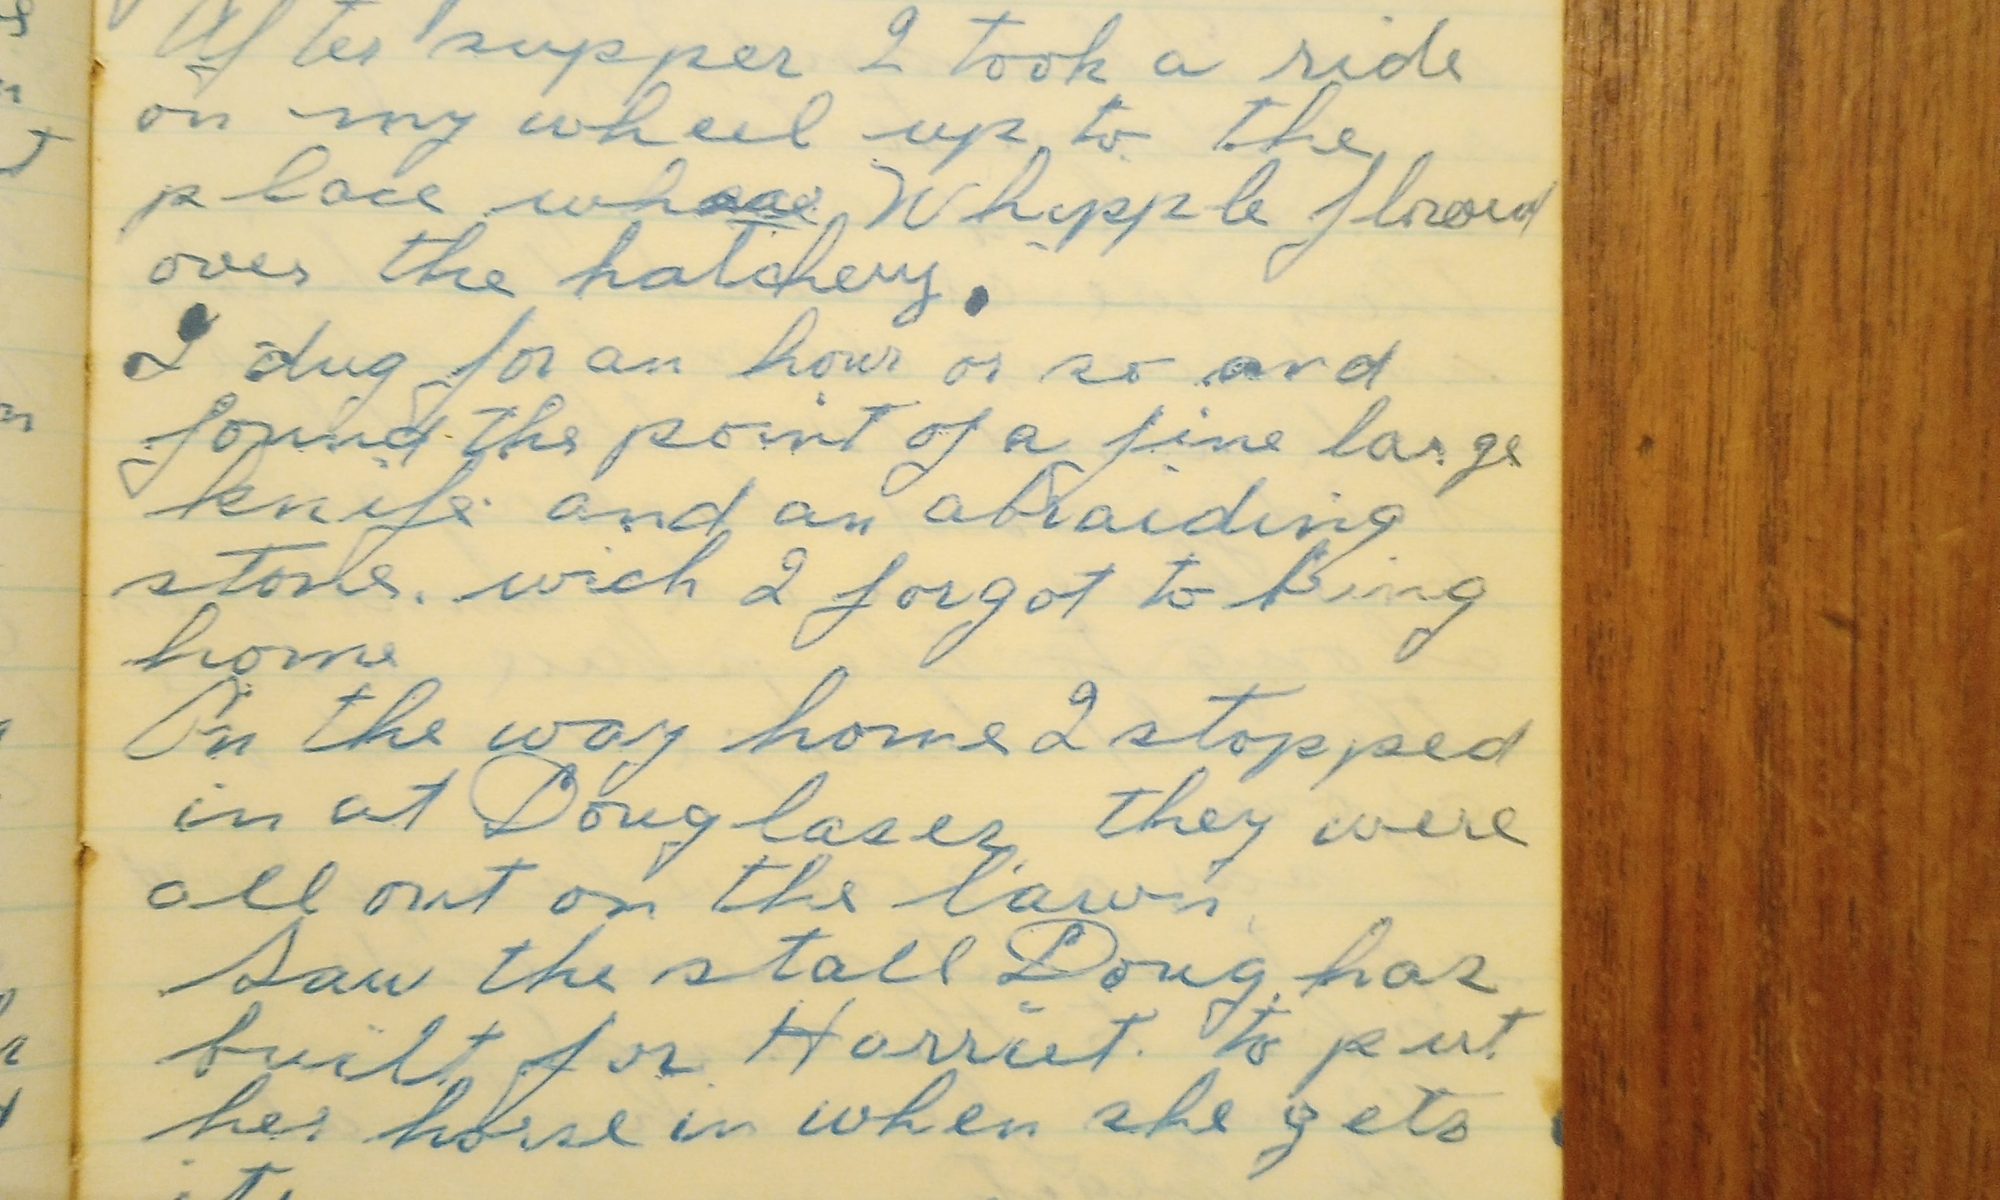 After supper I took a ride
on my wheel up to the
place whare Whipple plowed
over the hatchery.
I dug for an hour or so and
found the point of a fine large
knife and an abraiding
stone. wich I forgot to bring
home
On the way home I stopped
in at Douglases they were
all out on the lawn
Saw the stall Doug has
built for Harriet to put
her horse in when she gets
it